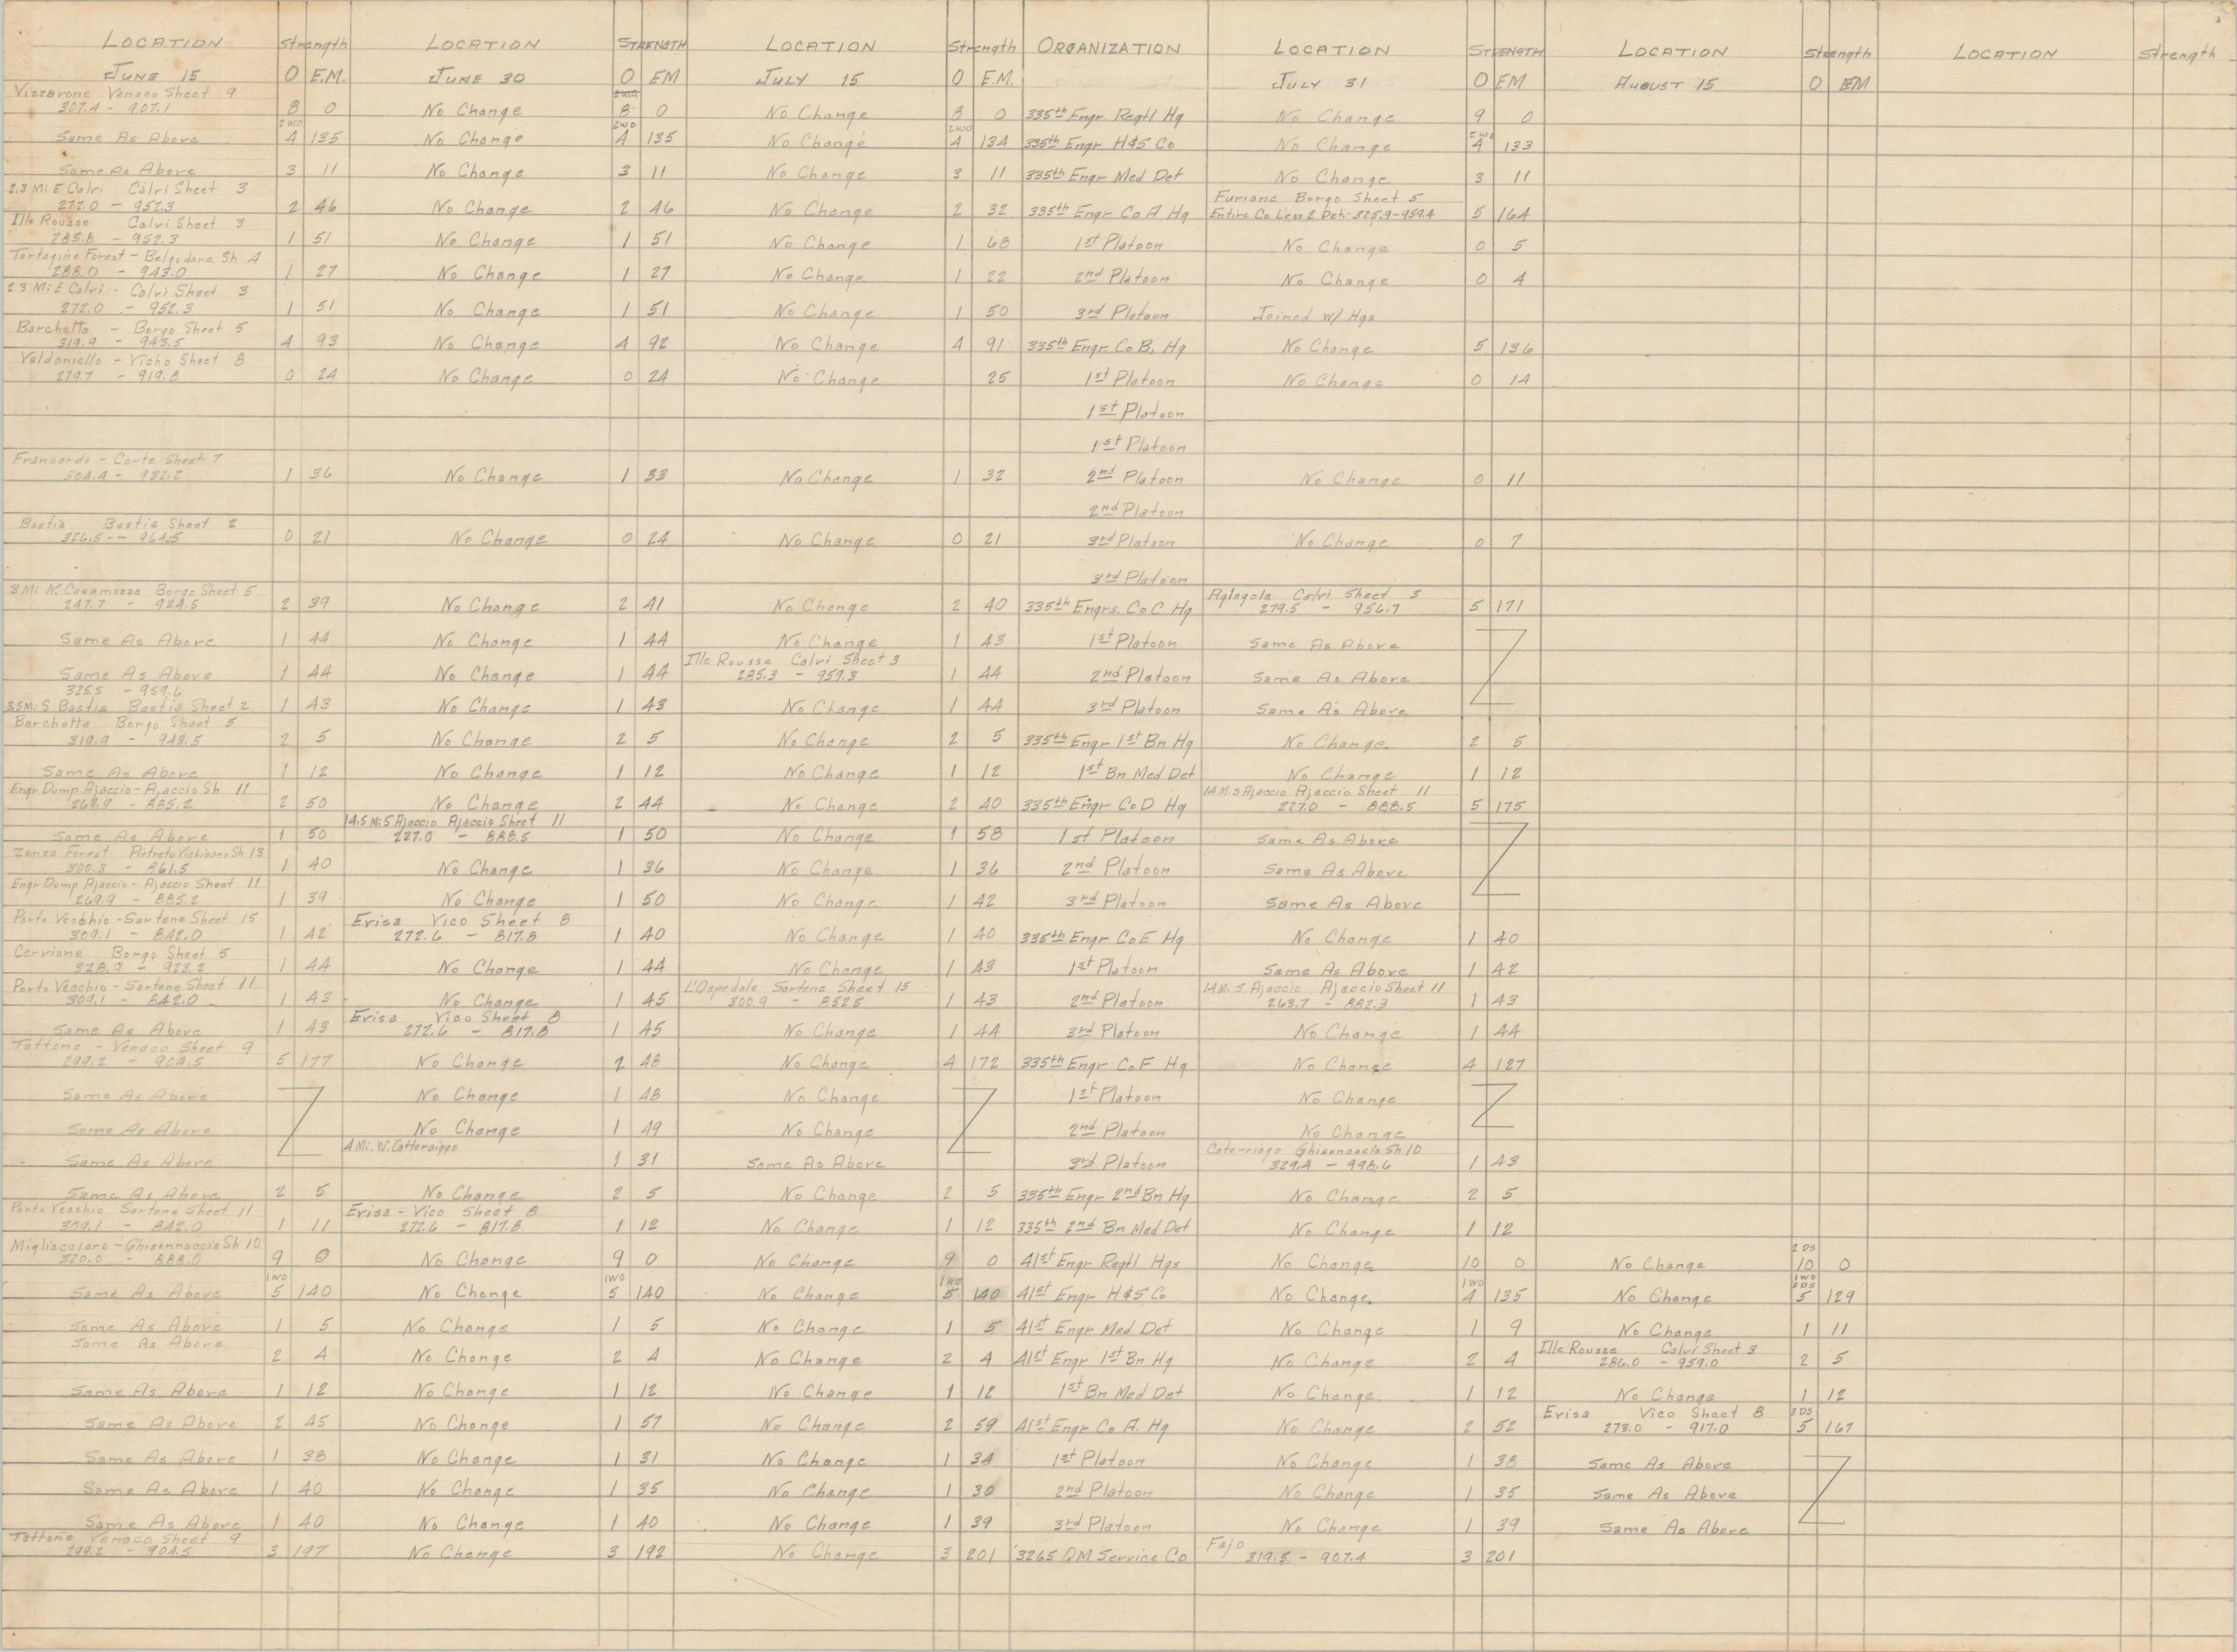 LOCATION Strength LOCATION STRENGTH LOCATION Strength ORGANIZATION LOCATION STRENGTH LOCATION Strength LOCATION Strength
JUNE 15 O E.M. JUNE 30 O EM JULY 15 O E.M. JULY 31 O EM AUGUST 15 O EM
Vizzavone Venaco Sheet 9
307.4 - 907.1 8 0 No Change 8 0 No Change 8 0 335th Engr. Regtl Hq No Change 9 0
2WO 2WO 2WO 2WO
Same As Above 4 135 No Change 4 135 No Change 4 134 335th Engr H&S Co No Change 4 133
Same As Above 3 11 No Change 3 11 No Change 3 11 335th Engr Med Det No Change 3 11
2.3 Mi E Calvi Calvi Sheet 3 Furiano Borgo Sheet 5
272.0 - 952.3 2 46 No Change 2 46 No Change 2 32 335th Engr Co A Hq Entire Co Less 2 Det. 325.9-959.4 5 164
Ille Rousse Calvi Sheet 3
285.8 - 952.3 1 51 No Change 1 51 No Change 1 68 1st Platoon No Change 0 5
Tartagine Forest - Belgodere Sh 4
288.0 - 943.0 1 27 No Change 1 27 No Change 1 22 2nd Platoon No Change 0 4
2.3 Mi E Calvi - Calvi Sheet 3
272.0 - 952.3 1 51 No Change 1 51 No Change 1 50 3rd Platoon Joined w/ Hqs
Barchetta - Borgo Sheet 5
319.9 - 943.5 4 93 No Change 4 92 No Change 4 91 335th Engr Co B, Hq No Change 5 136
Valdoniello - Vicho Sheet 8
279.7 - 919.8 0 24 No Change 0 24 No Change 25 1st Platoon No Change 0 14
1st Platoon
1st Platoon
Francardo - Corte Sheet 7
304.4 - 932.2 1 36 No Change 1 33 No Change 1 32 2nd Platoon No Change 0 11
2nd Platoon
Bastia Bastia Sheet 2
326.5 -- 964.5 0 21 No Change 0 24 No Change 0 21 3rd Platoon No Change 0 7
3rd Platoon
3 Mi N. Casamozza Borgo Sheet 5 Aglagola Calvi Sheet 3
247.7 - 924.5 2 39 No Change 2 41 No Change 2 40 335th Engrs. Co C Hq 279.5 - 956.7 5 171
Same As Above 1 44 No Change 1 44 No Change 1 43 1st Platoon Same As Above
Ille Rousse Calvi Sheet 3
Same As Above 1 44 No Change 1 44 285.3 - 959.3 1 44 2nd Platoon Same As Above
325.5 - 959.6
3.5 Mi S Bastia Bastia Sheet 2 1 43 No Change 1 43 No Change 1 44 3rd Platoon Same As Above
Barchetta Borgo Sheet 5
319.9 - 943.5 2 5 No Change 2 5 No Change 2 5 335th Engr 1st Bn Hq No Change 2 5
Same As Above 1 12 No Change 1 12 No Change 1 12 1st Bn Med Det No Change 1 12
Engr Dump Ajaccio - Ajaccio Sh 11 14 M. S Ajaccio Ajaccio Sheet 11
269.9 - 885.2 2 50 No Change 2 44 No Change 2 40 335th Engr Co D Hq 277.0 - 888.5 5 175
14.5 Mi S Ajaccio Ajaccio Sheet 11
Same As Above 1 50 277.0 - 888.5 1 50 No Change 1 58 1st Platoon Same As Above
Zonza Forest Sh 13
300.3 - 861.5 1 40 No Change 1 36 No Change 1 36 2nd Platoon Same As Above
Engr Dump Ajaccio - Ajaccio Sheet 11
269.9 - 885.2 1 39 No Change 1 50 No Change 1 42 3rd Platoon Same As Above
Porto Vecchio - Sartene Sheet 15 Erisa Vico Sheet 8
309.1 - 842.0 1 42 272.6 - 817.8 1 40 No Change 1 40 335th Engr Co E Hq No Change 1 40
Cerrione Borgo Sheet 5
328.9 - 923.2 1 44 No Change 1 44 No Change 1 43 1st Platoon Same As Above 1 42
Porto Vecchio - Sartene Sheet 11 L'Ospedale Sartene Sheet 15 14 M. S Ajaccio Ajaccio Sheet 11
309.1 - 842.0 1 43 No Change 1 45 300.9 - 852.5 1 43 2nd Platoon 263.7 - 882.3 1 43
Erisa Vico Sheet 8
Same As Above 1 43 272.6 - 817.8 1 45 No Change 1 44 3rd Platoon No Change 1 44
Tattone - Venaco Sheet 9
299.2 - 904.5 5 177 No Change 2 48 No Change 4 172 335th Engr Co F Hq No Change 4 127
Same As Above No Change 1 48 No Change 1st Platoon No Change
Same As Above No Change 1 49 No Change 2nd Platoon No Change
4 Mi. W. Catteraigio Caterriago Ghisonaccia Sh 10
Same As Above 1 31 Same As Above 3rd Platoon 329.4 - 998.6 1 43
Same As Above 2 5 No Change 2 5 No Change 2 5 335th Engr 2nd Bn Hq No Change 2 5
Porto Vecchio Sartene Sheet 11 Erisa - Vico Sheet 8
309.1 - 842.0 1 11 272.6 - 817.8 1 12 No Change 1 12 335th 2nd Bn Med Det No Change 1 12
Migliacciaro - Ghisonnaccia Sh 10 2 DS
320.0 - 888.0 9 0 No Change 9 0 No Change 9 0 41st Engr Regtl Hqs No Change 10 0 No Change 10 0
1WO 1WO 1WO 1WO 1WO 3DS
Same As Above 5 140 No Change 5 140 No Change 5 140 41st Engr H&S Co No Change 4 135 No Change 5 129
Same As Above 1 5 No Change 1 5 No Change 1 5 41st Engr Med Det No Change 1 9 No Change 1 11
Same As Above Ille Rousse Calvi Sheet 3
2 4 No Change 2 4 No Change 2 4 41st Engr 1st Bn Hq No Change 2 4 286.0 - 959.0 2 5
Same As Above 1 12 No Change 1 12 No Change 1 12 1st Bn Med Det No Change 1 12 No Change 1 12
Erisa Vico Sheet 8 3DS
Same As Above 2 45 No Change 1 57 No Change 2 59 41st Engr Co A. Hq No Change 2 52 273.0 - 917.0 5 167
Same As Above 1 38 No Change 1 31 No Change 1 34 1st Platoon No Change 1 38 Same As Above
Same As Above 1 40 No Change 1 35 No Change 1 30 2nd Platoon No Change 1 35 Same As Above
Same As Above 1 40 No Change 1 40 No Change 1 39 3rd Platoon No Change 1 39 Same As Above
Tattone Venaco Sheet 9 Fajo
299.2 - 904.5 3 197 No Change 3 192 No Change 3 201 3265 QM Service Co 319.5 - 907.4 3 201